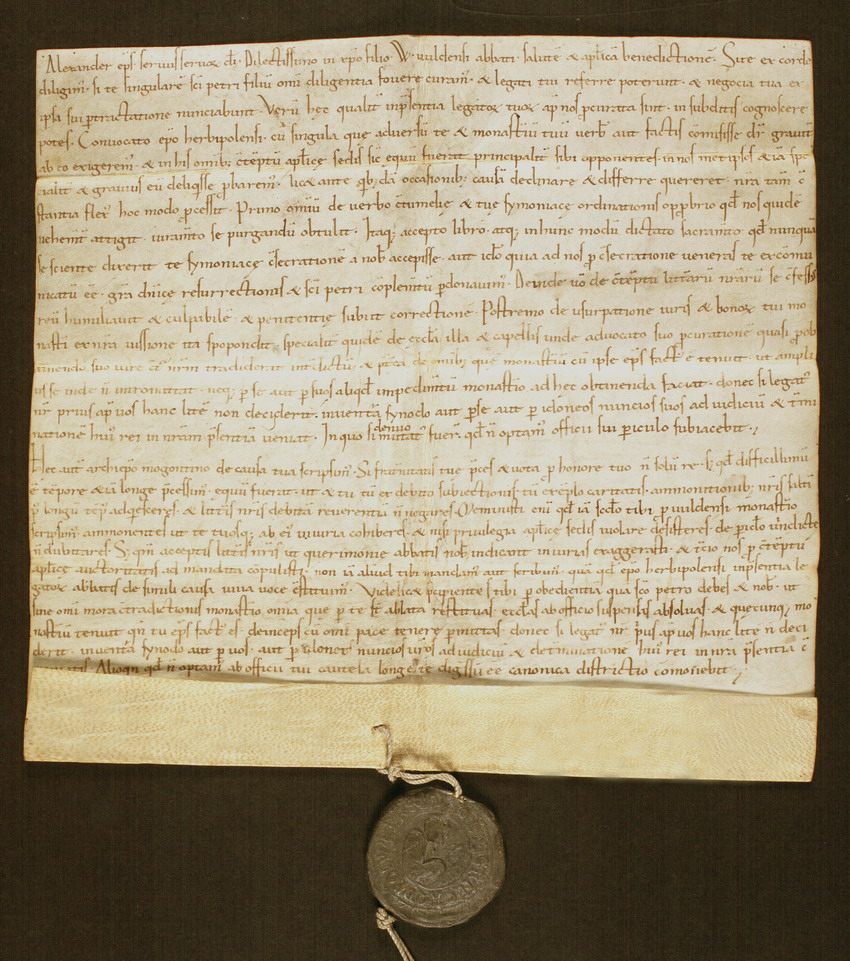 Alexander ep̄s servus servoꝝ dī. Dilectissimo in xp̄o filio W. vuldensi abbati salutē & aplicā benedictionē. Si te ex corde
diligim̄. si te singularē sc̄i petri filiū om̄i diligentia fovere curam̄. & legati tui referre poterunt. & negocia tua ex
ipsa sui ptractatione nunciabunt. Verū hec qualit̄ in p̄sentia legatoꝝ tuoꝝ ap̄ nos p̄curata sint. in subditis cognoscere
potes. Convocato ep̄o herbipolensi. cū singula que adversū te & monast̄iū tuū verb̄ aut factis cōmisisse dr̄ gravit̄
ab eo exigerem̄. & in his omīb; ctēptū aplicę sedis sic equū fuerat principalit̄ sibi opponentes. in nos metipsos & iā spe
cialit̄ & gravius eū deliqsse pbarem̄. lic& ante qb;dā occasionib; causā declinare & differre quereret. nr̄a tam̄ c̄
stantia flex̄ hoc modo pcessit. Primo om̄iū de verbo ctumelię & tuę symoniacę ordinationis opprobrio qd̄ nos quidē
vehem̄t̄ attigit. iuram̄to se purgandū obtulit. Itaq; accepto libro. atq; in hunc modū dictato sacram̄to. qd̄ nunquā
se sciente dixerit te symoniacę csecrationē a nob̄ accepisse. aut ido quia ad nos p csecratione veneras te excōmu
nicatū ēē. grā dn̄icę resurrectionis & sc̄i petri coplem̄tū pdonavim̄. Deinde vo de ctēptu litt̄arū nr̄arū se cfess
reū humiliavit & culpabilē. & penitentię subiit correctionē. Postremo de usurpatione iuris & bonoꝝ tui mo
nast̄i ex nr̄a iussione ita spopondit. specialit̄ quidē de eccl̄a illa & capellis unde advocato suo pcurationē quasi p ob
suo iure ct̄ nr̄m tradiderit intdictū. & pt̄ea de om̄ib; que monast̄iū cū ipse ep̄s fact̄ ē tenuit. ut ampli
us se inde n̄ intromittat. neq; p se aut p suos aliqd̄ impedim̄tū monast̄io ad hec obtinenda faciat. donec si legat̄
nr̄ prius ap̄ vos hanc litē non deciderit. in ventā synodo aut p se aut p idoneos nuncios suos ad iudiciū & t̄mi
nationē hui rei in nr̄am p̄sentiā veniat. In quo si denuo mutat̄ fuer̄. qd̄ n̄ optam̄ officii sui periculo subiacebit.
Hec aut̄ archiep̄o mogontino de causa tua scripsim̄. Si frat̄nitatis tuę p̄ces & vota p honore tuo n̄ solū re. s; qd̄ difficillimū
ē tēpore & iā longe p̄cessim̄. equū fuerat ut & tu tū ex debito subiectionis tū exēplo caritatis. ammonitionib; nr̄is saltī
p longū tēp̄ adqiesceres. & litt̄is nr̄is debitā reverentiā n̄ negares. Meministi eni qd̄ iā sedo tibi p vuldensi monast̄io
scripsim̄ ammonentes ut te tuosq; ab ei iniuria cohiberes & nisi privilegia aplicę sedis violare desisteres de piclo vindictę
n̄ dubitares. S; qm̄ acceptis litt̄is nr̄is ut querimonie abbatis nob̄ indicant iniurias exaggerasti. & t̄cio nos p ctēptū
aplicę auctoritatis ad mandata cōpulisti. non iā aliud tibi mandam̄ aut scribim̄. quā qd̄ ep̄o herbipolensi in p̄sentia le
gatoꝝ abbatis de simili causa viva voce cstituim̄. Videlic& p̄cipientes tibi p obedientia quā sc̄o petro debes & nob̄. ut
sine om̄i mora ctradictionis monast̄io om̄ia que p te st̄ ablata restituas. eccl̄as ab officio suspensas absolvas. & quecunq; mo
nast̄iū tenuit qn̄ tu ep̄s fact̄ es. deinceps cū om̄i pace tenere pmittas. donec si legat̄ nr̄ p̄us ap̄ vos hanc litē n̄ deci
derit. in ventā synodo aut p vos. aut p idoneos nuncios vr̄os ad iudiciū & det̄minationē hui rei in nr̄a p̄sentia c̄
Alioqn qd̄ n̄ optam̄ ab officii tui cautela longe te digssū ēē canonica districtio comonebit.